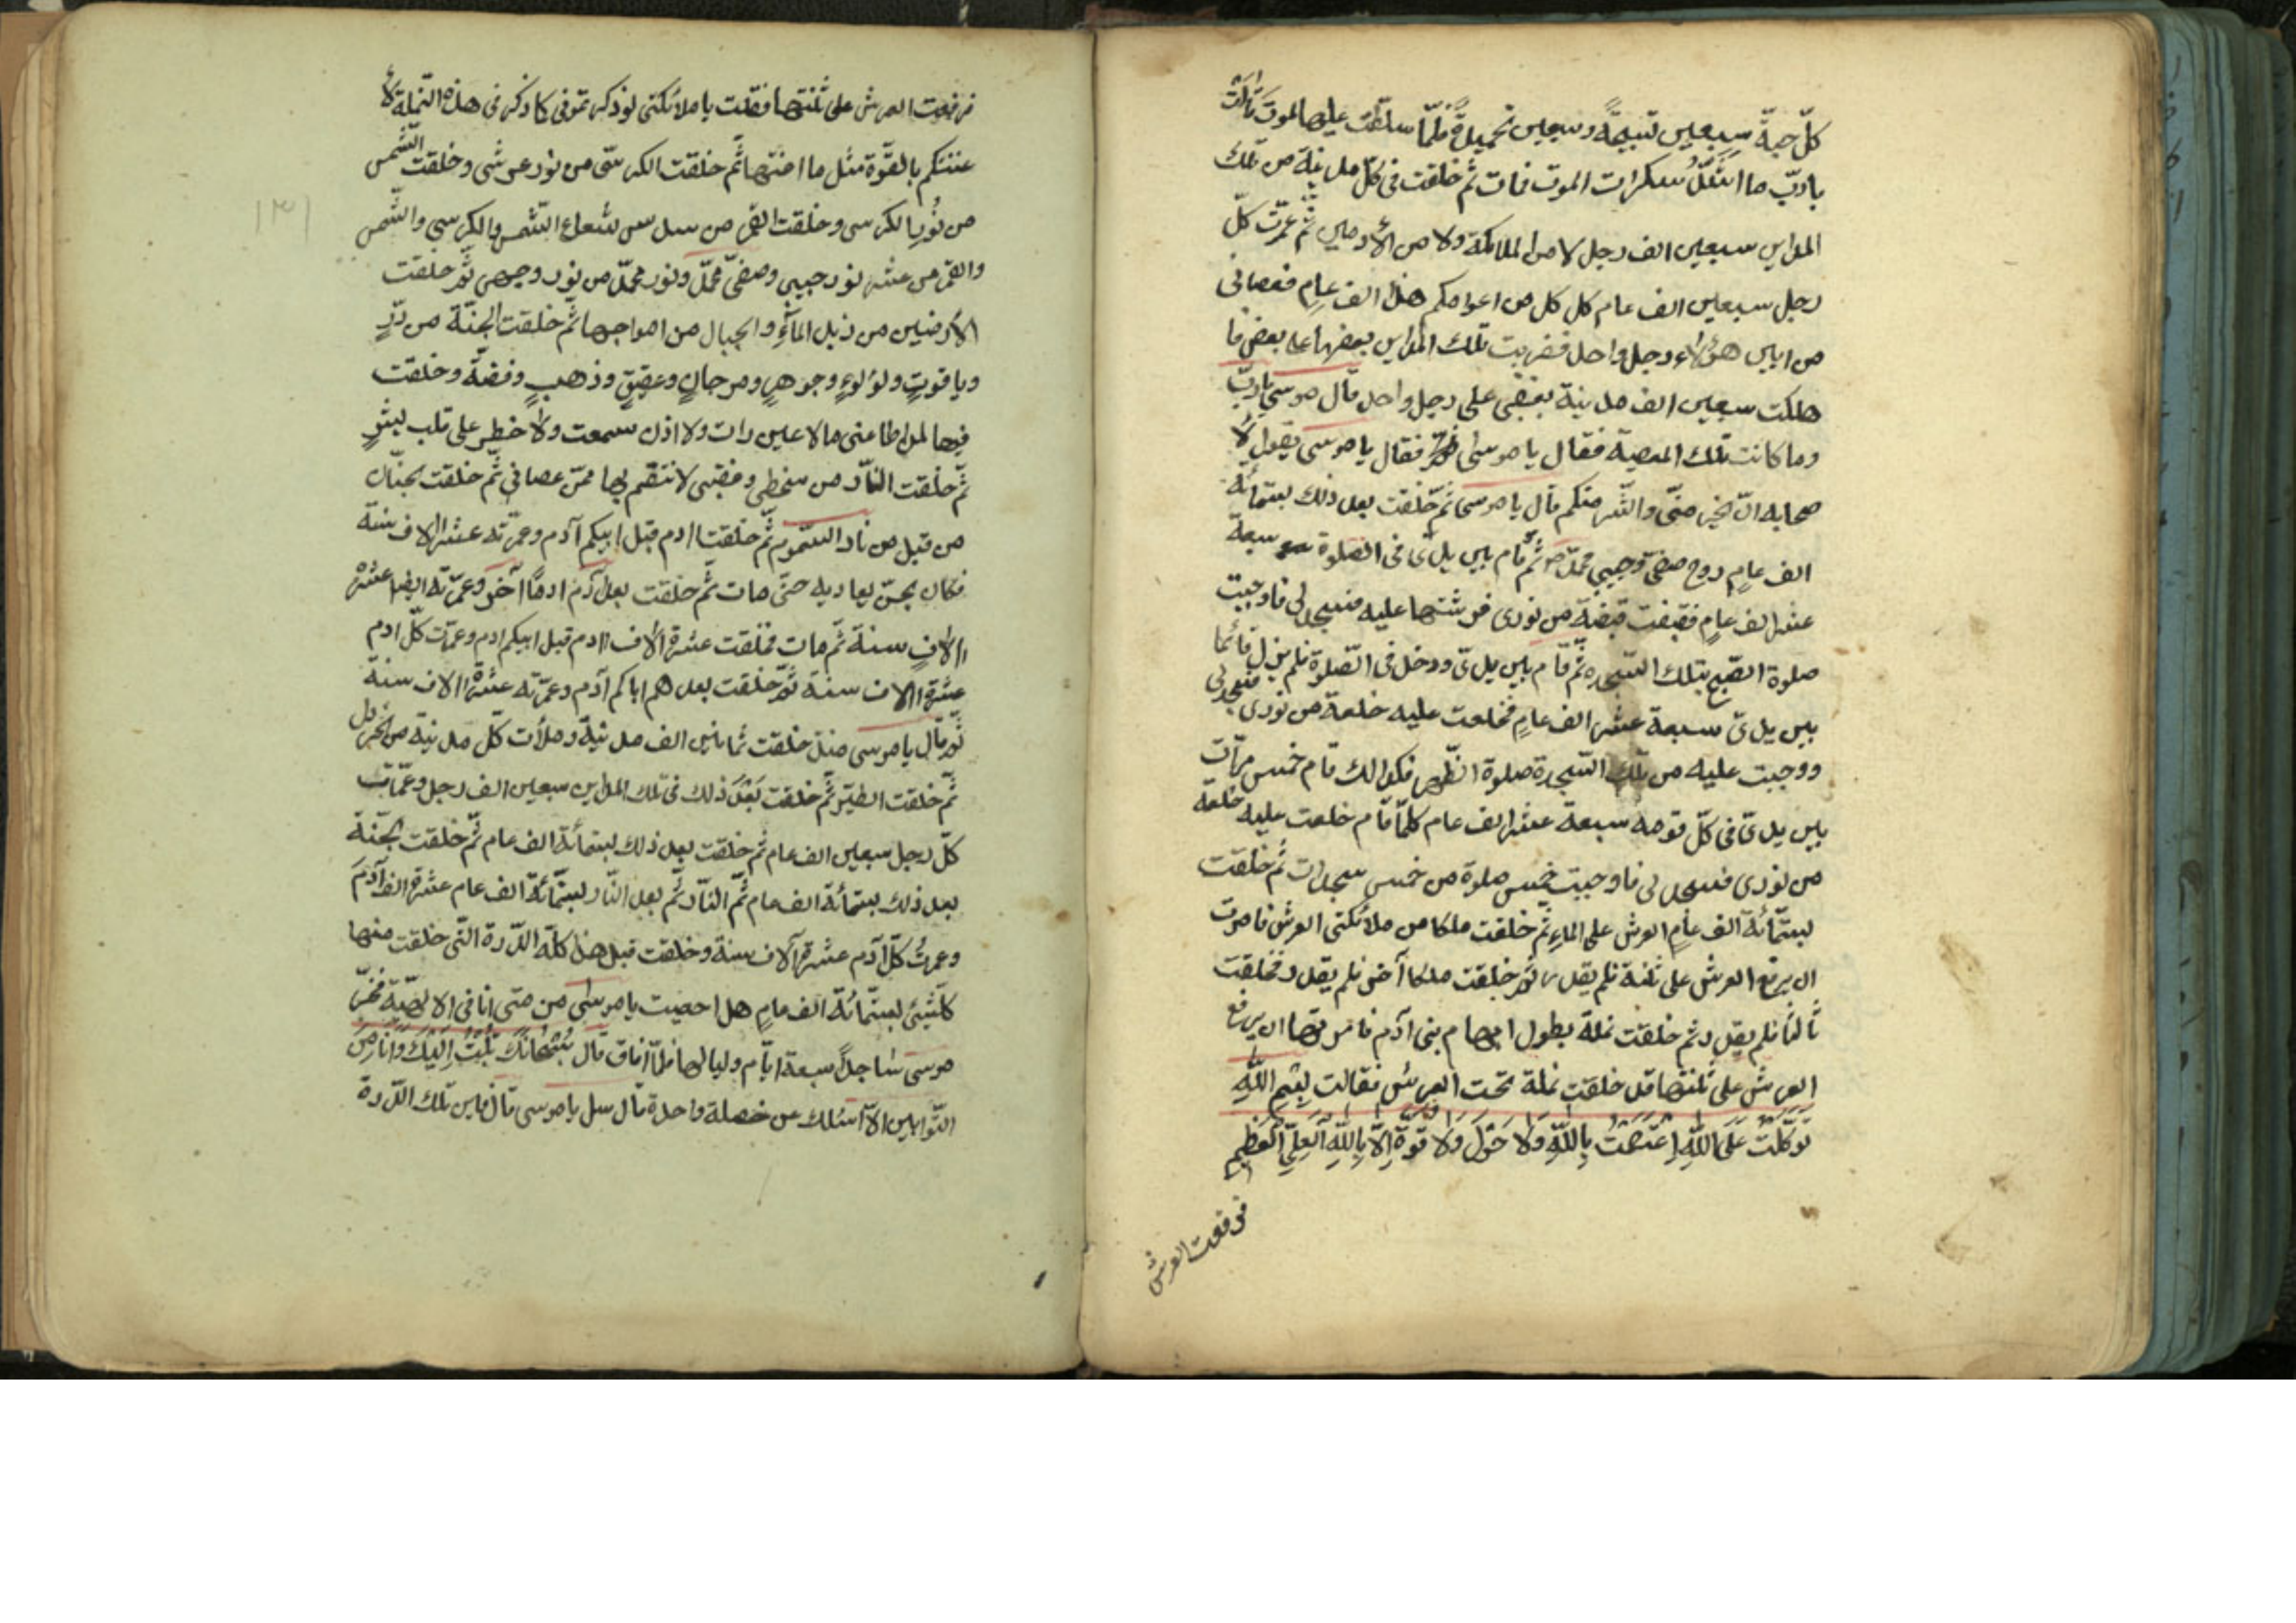 كلّ حبة سبعين تسبيحةً وسبعين تحميدةً فلمّا سلّطت عليها الموت قالت
يا ربّ ما اشدّ سكرات الموت فمات ثم خلقت فى كلّ مدينة من تلك
المداين سبعين الف رجل لا من الملائكة ولا من الأدميين ثم عمرّت كلّ
رجل سبعين الف عام كل كل من اعوامكم هذا الف عامٍ فعصانى
من اباين هؤلاء رجل واحد فضربت تلك المداين بعضها على بعض فا
هلكت سبعين الف مدينة بغضبى على رجل واحد قال موسى يا ربّ
وما كانت تلك المعصية فقال يا موسى فقال يا موسى يقول لا
صحابه انّ الخير منّى والشّر منكم قال يا موسى ثمّ خلقت بعد ذلك بستمائة
الف عامٍ روح صفىّ وحبيبى محمّد ثمّ قام بين يدىّ فى الصلوة سبعة
عشر الف عامٍ فقبضت قبضة من نورى فرشتها عليه فسجد لى فاوجبت
صلوة الصّبح بتلك السّجدة ثمّ قام بين يدىّ ودخل فى الصّلوة فلم يزل قائما
بين يدىّ سبعة عشر الف عامٍ فخلعت عليه خلعة من نورى فسجد لى
ووجبت عليه من تلك السّجدة صلوة الظّهر فكذلك قام خمس مرّات
بين يدىّ فى كلّ قومة سبعة عشر الف عام كلّما قام خلعت عليه خلعة
من نورى فسجد لى فاوجبت خمس صلوة من خمس سجدات ثم خلقت
بستّمائة الف عامٍ العرش على الماء ثم خلقت ملكا من ملائكتى العرش فامرت
ان يرفع العرش على ثفنة فلم يقدر ثم خلقت ملكا آخر فلم يقدر فخلقت
ثالثا فلم يقدر ثم خلقت نملة بطول ابهام بنى آدم فامرتها ان يرفع
العرش على ثفنتها قد خلقت نملة تحت العرش فقالت بِسْمِ اللهِ
تَوَكَّلْتُ عَلَى اللهِ اِعْتَصَمْتُ بِاللهِ وَلَا حَوْلَ وَلَا قُوَّةَ اِلَّا بِاللهِ الْعَلِىِّ الْعَظِيمِ
فرفعت العرش
فرفعت العرش على ثفنتها فقلت يا ملائكتى لو ذكرتمونى كما ذكرنى هذه النّملة لأ
عنتكم بالقوّة مثل ما اعنتها ثم خلقت الكرسّى من نور عرشى وخلقت الشّمس
من نُورِ الكرسى وخلقت القمر من سدس شعاع الشّمس والكرسى والشّمس
والقمر من عشر نور حبيبى وصفىّ محمّد ونور محمّد من نور وجهى ثم خلقت
الأرضين من زبد المآءِ والجبال من امواجها ثم خلقت الجنّة من درٍّ
وياقوتٍ ولؤلوءٍ وجوهرٍ ومرجانٍ وعقيقٍ وذهبٍ وفضّة وخلقت
فيها لمن اطاعنى ما لا عين رات ولا اذن سمعت ولا خطر على قلب بشرٍ
ثمّ خلقت النّار من سخطى وغضبى لانتقم بها ممّن عصانى ثمّ خلقت الجنّان
من قبل من نار السّموم ثمّ خلقت اادم قبل ابيكم آدم وعمرّته عشر الاف سنة
فكان الجنّ يعاديه حتى مات ثم خلقت بعد آدم ادمًا آخر وعمّرته ايضا عشرة
االافٍ سنة ثم مات فخلقت عشرة الاف اادم قبل ابيكم ادم وعمّرت كلّ ادم
عشرة االاف سنة ثمّ خلقت بعد هم اباكم آدم وعمّرته عشرة االاف سنة
ثمّ قال يا موسى منذ خلقت ثمانين الف مدينة وملأت كلّ مدينة من الخردل
ثم خلقت الطّير ثم خلقت بَعْدَ ذلك فى تلك المداين سبعين الف رجل وعمّرت
كلّ رجل سبعين الف عام ثم خلقت بعد ذلك بستمائة الف عام ثمّ خلقت الجنّة
بعد ذلك بستمائة الف عام ثمّ النّار ثمّ بعد النّار بستّمائة الف عام عشرة الف آدمَ
وعمرتُ كلّ آدم عشرة آلاف سنة وخلقت قبل هذا كلّه الدّرة التّى خلقت منها
كلّ شئ بستّمائة الف عامٍ هل احصيت يا موسى من متى انا فى الالوهيّة فخرّ
موسى ساجداً سبعة ايّام ولياليها فلمّا افاق قال سُبْحَانَكَ تُبْتُ اِلَيْكَ وَاَنَا مِنَ
التّوابين الا اسئلك عن خصلة واحدة قال سل يا موسى قال فاين تلك الدّرة